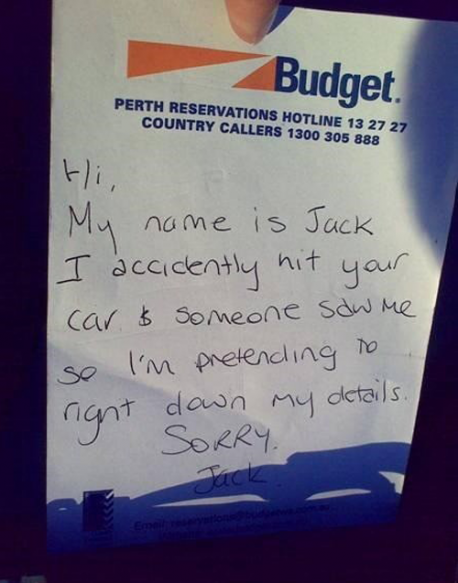 Budget.
PERTH RESERVATIONS HOTLINE 13 27 27
COUNTRY CALLERS 1300 305 888
Hi,
My name is Jack
I accidently hit your
car & someone saw me
so I'm pretending to
right down my details.
SORRY.
Jack